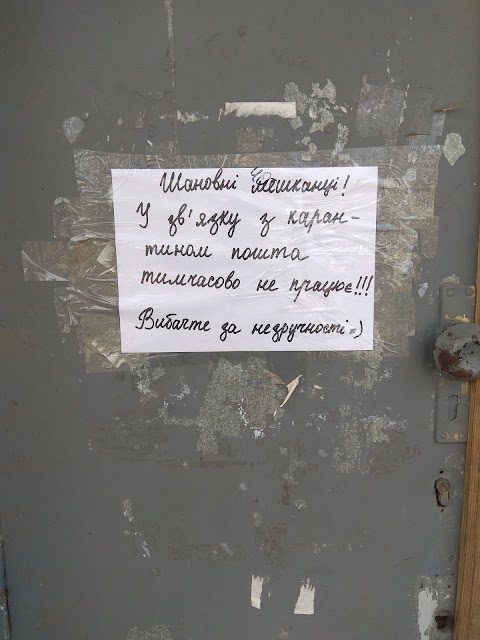 Шановні мешканці!
У зв'язку з каран-
тином пошта
тимчасово не працює!!!
Вибачте за незручності=)